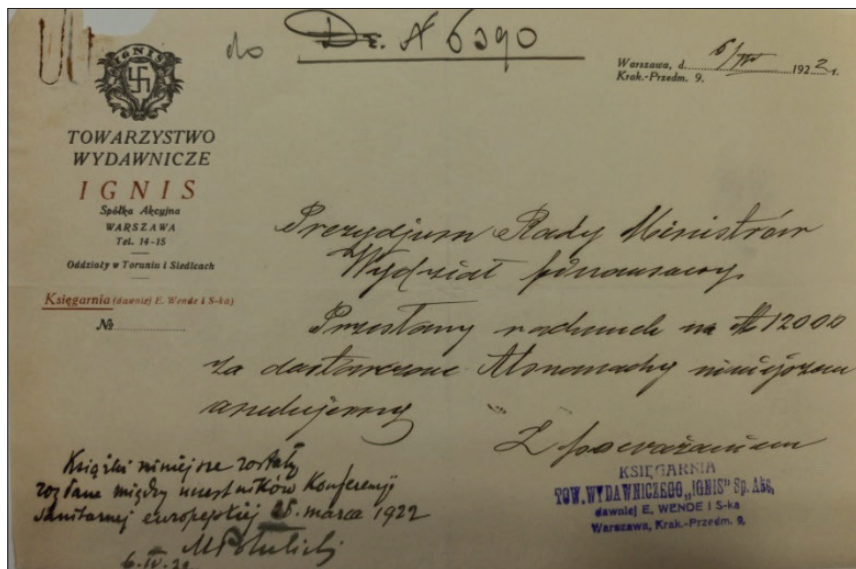 do Dz. N 6390
Warszawa, d. 6/IV 1922 r.
Krak.-Przedm. 9.
IGNIS
TOWARZYSTWO
WYDAWNICZE
IGNIS
Spółka Akcyjna
WARSZAWA
Tel. 14-15
Oddziały w Toruniu i Siedlcach
Księgarnia (dawniej E. Wende i S-ka)
№
Prezydjum Rady Ministrów
Wydział finansowy
Przesłany rachunek na M 12000
za dostarczone Almanachy niniejszem
anulujemy
Z poważaniem
KSIĘGARNIA
TOW. WYDAWNICZEGO „IGNIS" Sp. Akc.
dawniej E. WENDE I S-ka
Warszawa, Krak.-Przedm. 9.
Książki niniejsze zostały
rozdane między uczestników Konferencji
sanitarnej europejskiej 25. marca 1922
6.IV.22